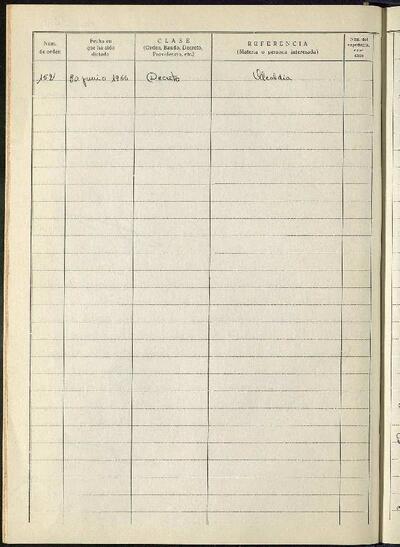 Núm. de orden
Fecha en que ha sido dictado
CLASE
(Orden, Bando, Decreto, Providencia, etc.)
REFERENCIA
(Materia o persona interesada)
Núm. del expediente
152 30 junio 1966 Decreto Alcaldia